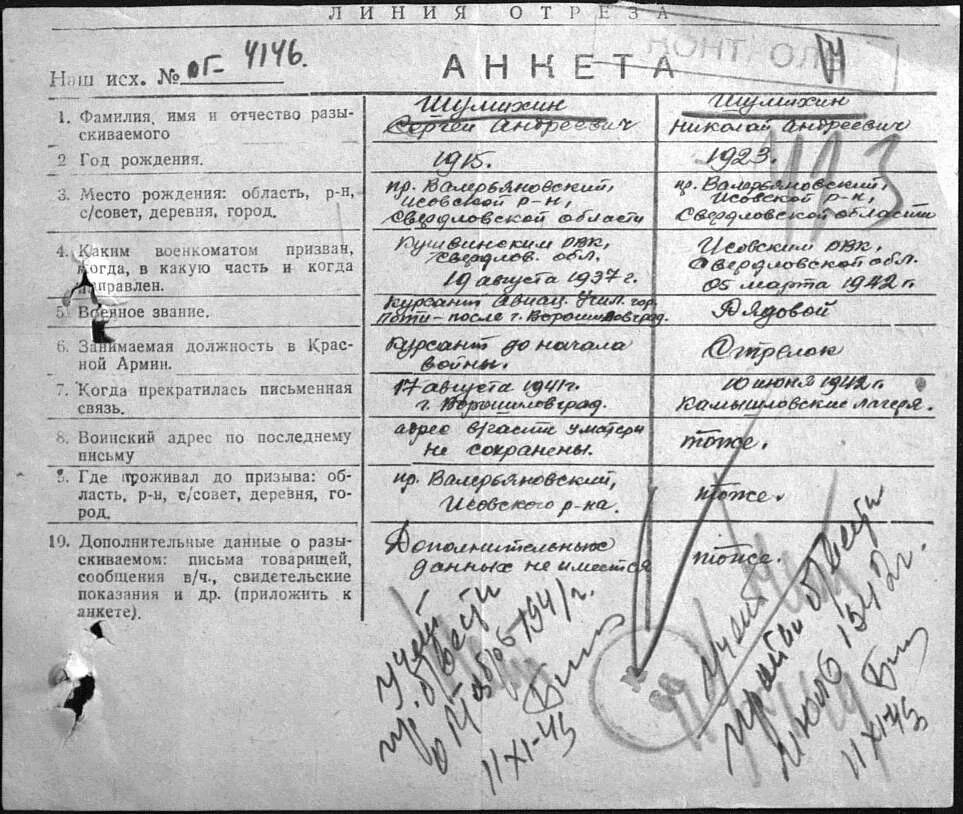 ЛИНИЯ ОТРЕЗА
Наш исх. № ог- 4146.
АНКЕТА
1. Фамилия, имя и отчество разы-
скиваемого
Шумихин
Сергей Андреевич
Шумихин
Николай Андреевич
2 Год рождения.
1915.
1923.
3. Место рождения: область, р-н,
с/совет, деревня, город.
пр. Валерьяновский,
Исовской р-н,
Свердловской области
пр. Валерьяновский,
Исовской р-н,
Свердловской области
4. Каким военкоматом призван,
когда, в какую часть и когда
направлен.
Кушвинским РВК,
Свердлов. обл.
19 августа 1937 г.
Исовским РВК,
Свердловской обл.
05 марта 1942 г.
5. Военное звание.
курсант Авиац. Учил. гор.
Поти-после г. Ворошиловград.
Рядовой
6. Занимаемая должность в Крас-
ной Армии.
Курсант до начала
войны.
Стрелок
7. Когда прекратилась письменная
связь.
17 августа 1941г.
г. Ворошиловград.
10 июня 1942 г.
Камышловские лагеря.
8. Воинский адрес по последнему
письму
адрес в/части у матери
не сохранены.
тоже.
9. Где проживал до призыва: об-
ласть, р-н, с/совет, деревня, го-
род.
пр. Валерьяновский,
Исовского р-на.
тоже.
10. Дополнительные данные о разы-
скиваемом: письма товарищей,
сообщения в/ч., свидетельские
показания и др. (приложить к
анкете).
Дополнительных
данных не имеется
тоже.
123
1941г.
11 XI-45
1942г.
11 XI-45